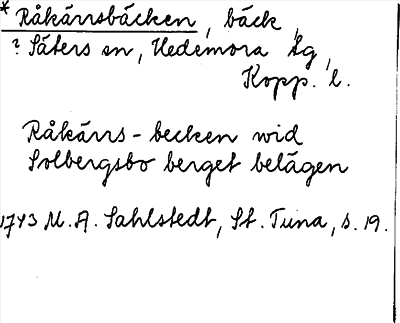 * Råkärrsbäcken, bäck,
? Säters sn, Hedemora tg,
Kopp. l.
Råkärrs-becken wid
Solbergsbo berget belägen
1743 M. A. Sahlstedt, St. Tuna, s. 19.